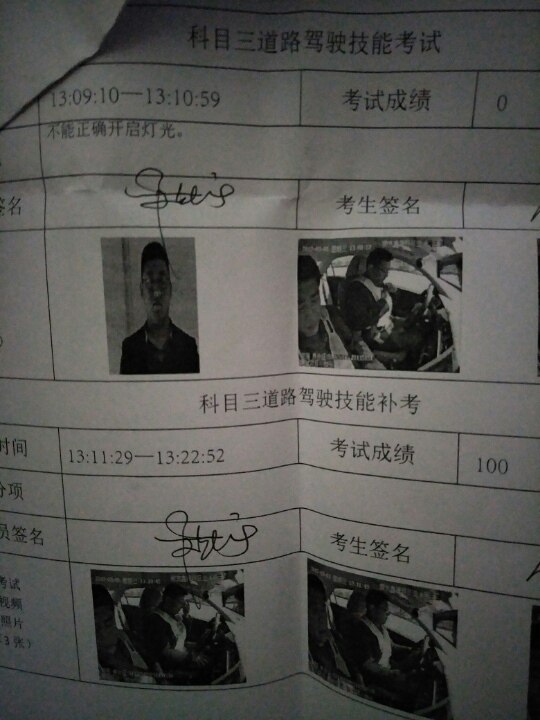 科目三道路驾驶技能考试
13:09:10—13:10:59 考试成绩 0
不能正确开启灯光。
签名 考生签名
科目三道路驾驶技能补考
时间 13:11:29—13:22:52 考试成绩 100
分项
员签名 考生签名
考试
视频
照片
3 张）